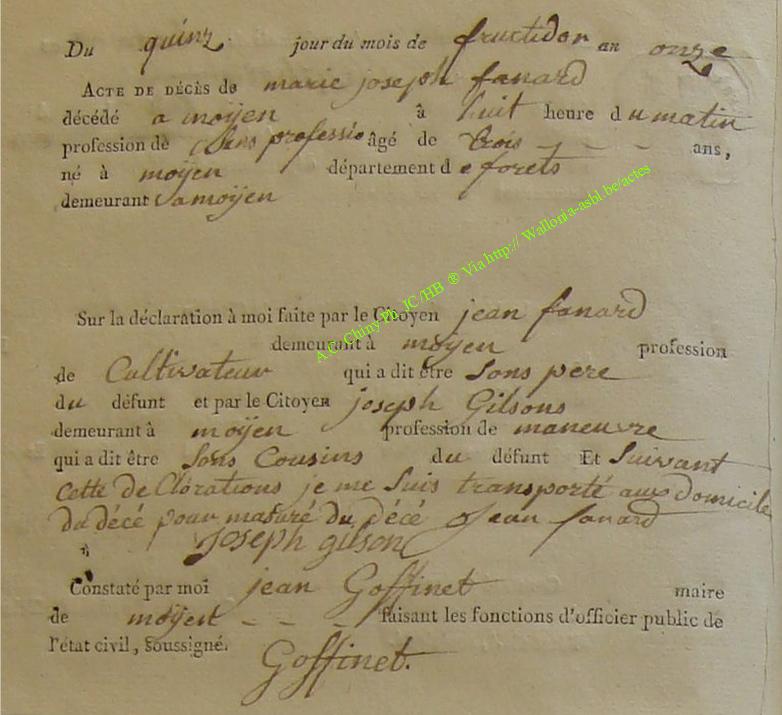 Du quinz jour du mois de fructidor an onze
ACTE DE DÉCÈS de marie joseph fanard
décédé a moÿen à huit heure du matin
profession de Sens professio âgé de trois - - - ans,
né à moÿen département de forets
demeurant a moÿen
Sur la déclaration à moi faite par le Citoyen jean fanard
demeurant à moyen profession
de Cultivateur qui a dit être Sons pere
du défunt et par le Citoyen joseph Gilsons
demeurant à moÿen profession de maneuvre
qui a dit être Sons Cousins du défunt Et Suivant
Cette de Clorations je me Suis transporté aux domicile
du décé pour masuré du décé Jean fanard
Joseph gilson
Constaté par moi jean Goffinet maire
de moÿen - - - faisant les fonctions d'officier public de
l'état civil, soussigné.
Goffinet.
A.C. Chiny Ph. JC/HB ® Via http:// Wallonia-asbl.be/actes